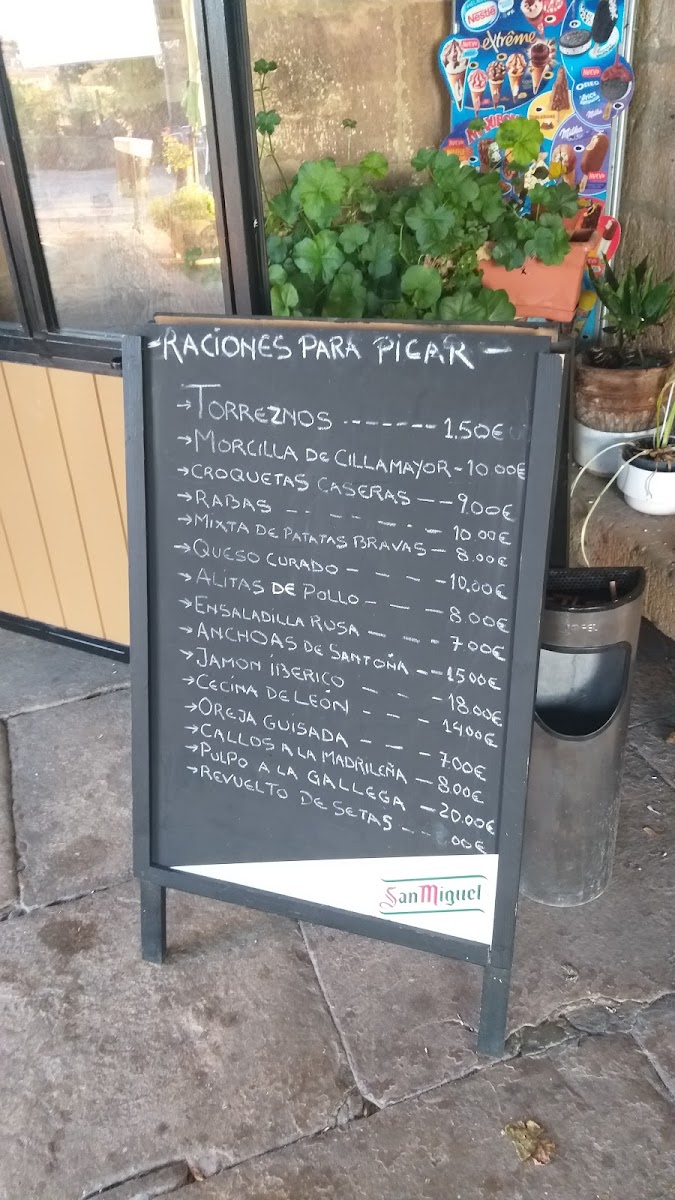 Nestlé
extrême
OREO
Milka
-RACIONES PARA PICAR-
→TORREZNOS ------- 1.50€
→MORCILLA DE CILLAMAYOR - 10.00€
→CROQUETAS CASERAS -- 9.00€
→RABAS -- - -- . - 10.00€
→MIXTA DE PATATAS BRAVAS - 8.00€
→QUESO CURADO - - - - 10.00€
→ALITAS DE POLLO - - - 8.00€
→ENSALADILLA RUSA -- - - 7.00€
→ANCHOAS DE SANTOÑA -- 15.00€
→JAMON ÍBERICO - - - 18.00€
→CECINA DE LEÓN - - - 14.00€
→OREJA GUISADA - - - 7.00€
→CALLOS A LA MADRILEÑA - 8.00€
→PULPO A LA GALLEGA - 20.00€
→REVUELTO DE SETAS --
San Miguel